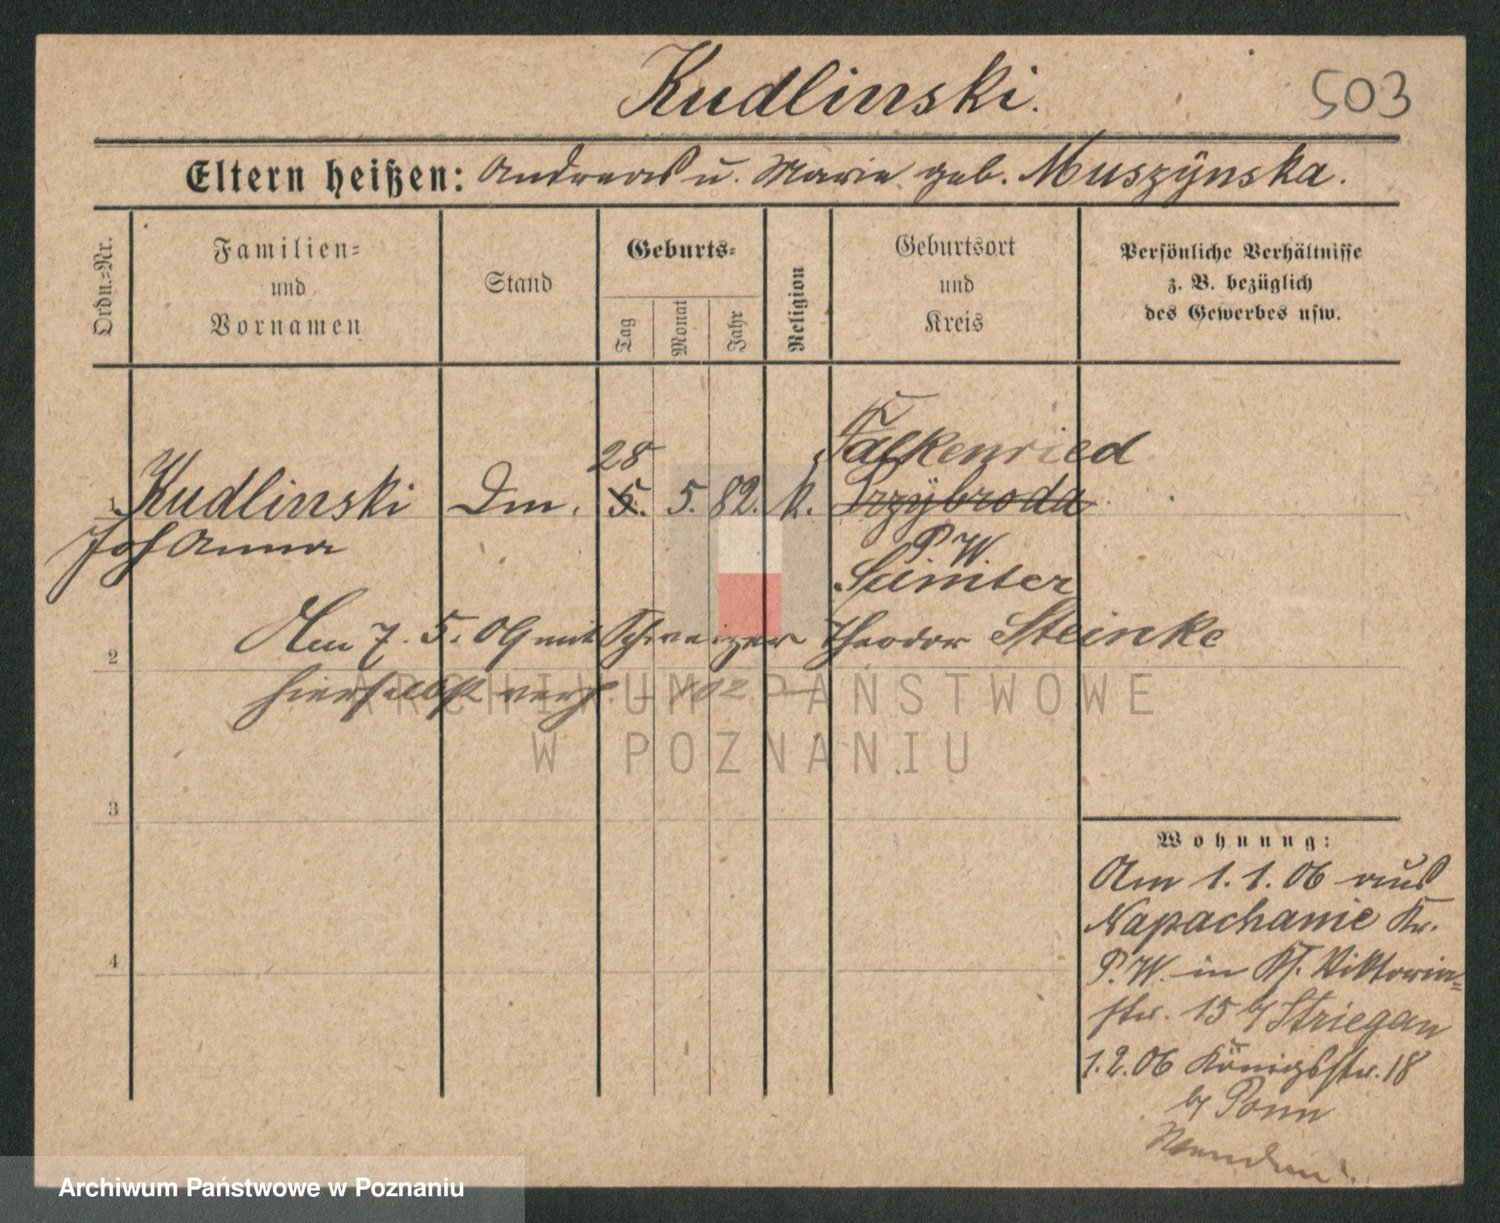 Kudlinski.
503
Eltern heißen: Andreas u. Marie geb. Muszÿnska.
Ordn.=Nr.
Familien=
und
Vornamen
Stand
Geburts=
Tag
Monat
Jahr
Religion
Geburtsort
und
Kreis
Persönliche Verhältnisse
z. B. bezüglich
des Gewerbes usw.
Falkenried
28
Kudlinski Dm. 5. 5. 82. k. Przÿbroda
Johanna
P. W
Samter
Am 7. 5. 09 mit Schweizer Theodor Steinke
2
hierselbst verh.
3
4
Wohnung:
Am 1. 1. 06 aus
Napachanie Kr.
P. W. in Kl. Viktoria=
str. 15 b/ Striegan
1. 2. 06 Königsstr. 18
b/ Ponn
ARCHIWUM PAŃSTWOWE
W POZNANIU
Archiwum Państwowe w Poznaniu